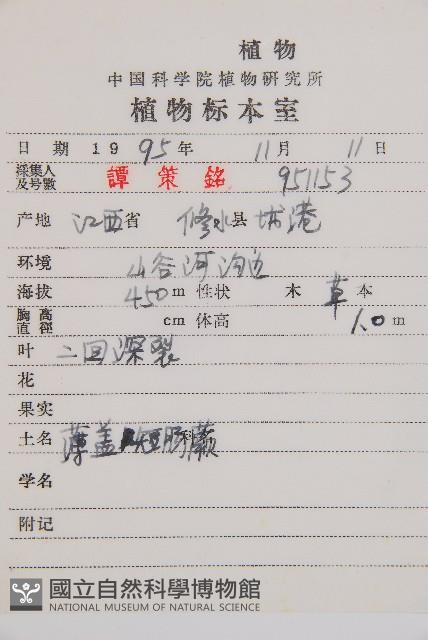 植物
中国科学院植物研究所
植物标本室
日 期 19 95 年 11 月 11 日
采集人及号数 譚策銘 951153
产地 江西省 修水县 城港
环境 山谷河沟边
海拔 450 m 性状 木 草 本
胸高直径 cm 体高 1.0 m
叶 二回深裂
花
果实
土名 薄盖短肠蕨 科名
学名
附记
國立自然科學博物館
NATIONAL MUSEUM OF NATURAL SCIENCE